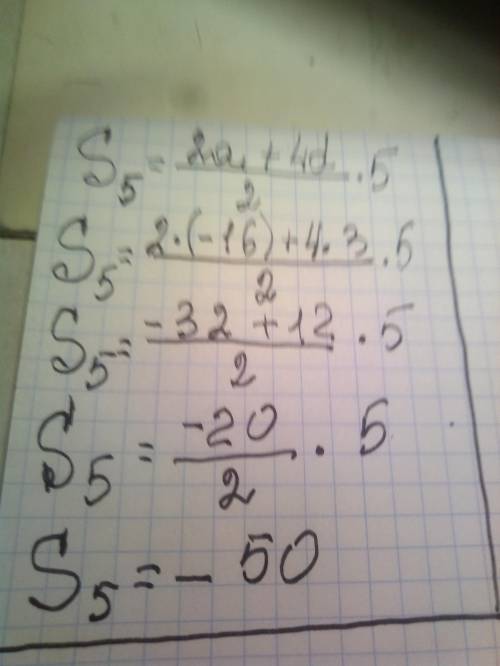 S₅ = (2a₁ + 4d)/2 · 5
S₅ = (2·(-16) + 4·3)/2 · 5
S₅ = (-32 + 12)/2 · 5
S₅ = (-20)/2 · 5
S₅ = - 50